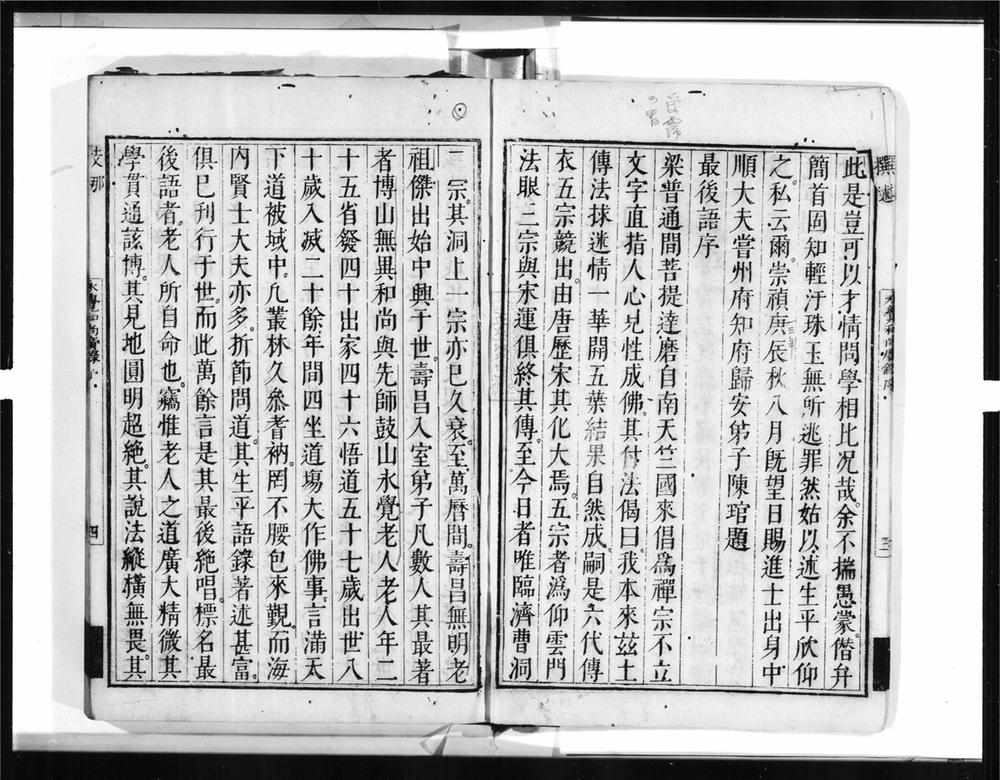 撰述
此是豈可以才情問學相比況哉余不揣愚蒙僭弁
簡首固知輕汙珠玉無所逃罪然姑以述生平欣仰
之私云爾崇禎庚辰秋八月旣望日賜進士出身中
順大夫嘗州府知府歸安弟子陳琯題
最後語序
梁普通間菩提達磨自南天竺國來倡爲禪宗不立
文字直指人心見性成佛其付法偈曰我本來茲土
傳法捄迷情一華開五葉結果自然成嗣是六代傳
衣五宗競出由唐歷宋其化大焉五宗者溈仰雲門
法眼三宗與宋運俱終其傳至今日者唯臨濟曹洞
二宗其洞上一宗亦已久衰至萬曆間壽昌無明老
祖傑出始中興于世壽昌入室弟子凡數人其最著
者博山無異和尚與先師鼓山永覺老人老人年二
十五省發四十出家四十六悟道五十七歲出世八
十歲入滅二十餘年間四坐道塲大作佛事言滿天
下道被域中凢叢林久叅耆衲罔不腰包來覲而海
内賢士大夫亦多折節問道其生平語錄著述甚富
俱已刊行于世而此萬餘言是其最後絶唱標名最
後語者老人所自命也竊惟老人之道廣大精微其
學貫通該博其見地圓明超絶其說法縱橫無畏其
支那
四